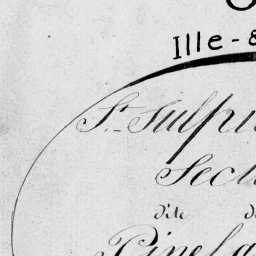 Ille-&
St. Sulpi
Sect
dite d
Pinel a